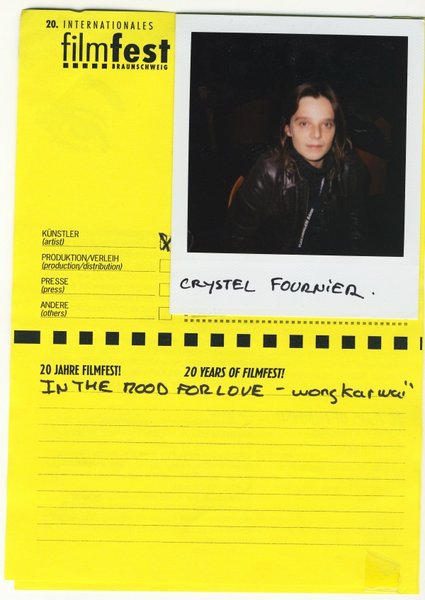 20. INTERNATIONALES
filmfest
BRAUNSCHWEIG
KÜNSTLER
(artist)
PRODUKTION/VERLEIH
(production/distribution)
PRESSE
(press)
ANDERE
(others)
CRYSTEL FOURNIER.
20 JAHRE FILMFEST! 20 YEARS OF FILMFEST!
IN THE MOOD FOR LOVE - wong kar waï"